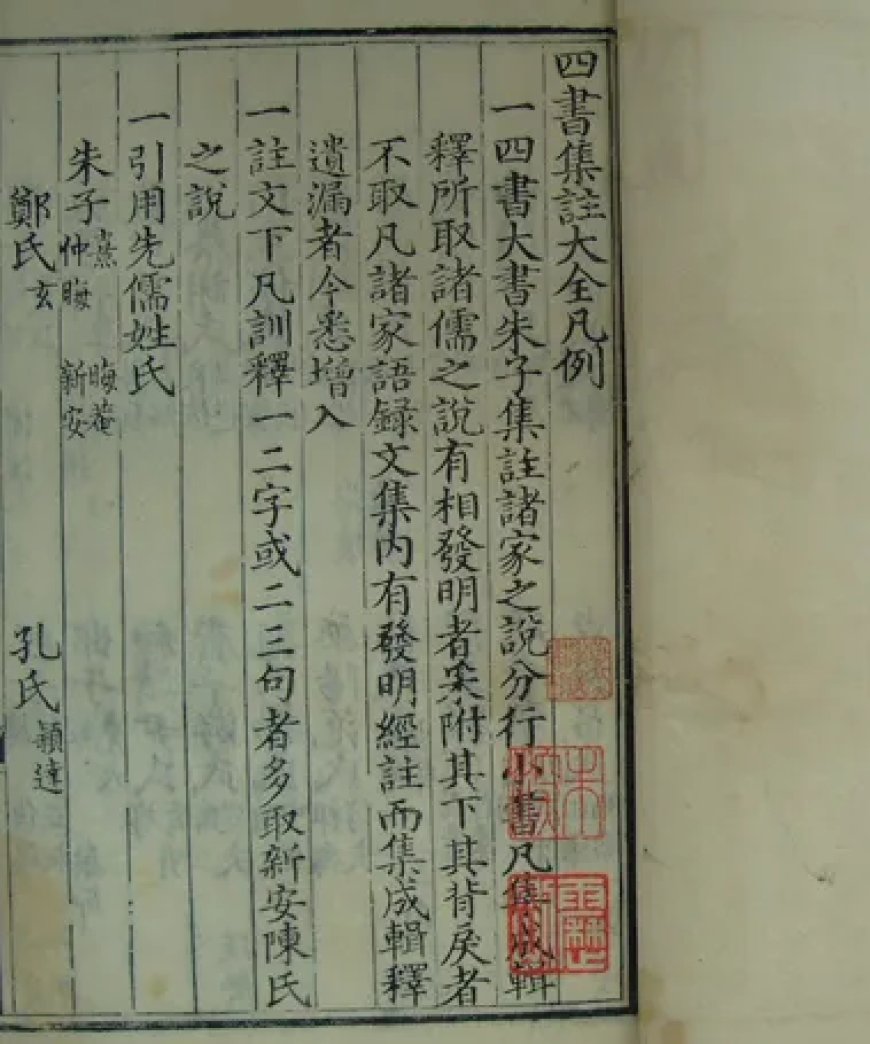 四書集註大全凡例
一四書大書朱子集註諸家之說分行小書凡集成輯
釋所取諸儒之說有相發明者采附其下其背戾者
不取凡諸家語録文集內有發明經註而集成輯釋
遺漏者今悉增入
一註文下凡訓釋一二字或二三句者多取新安陳氏
之說
一引用先儒姓氏
朱子熹仲晦 晦菴新安
鄭氏玄 孔氏穎達